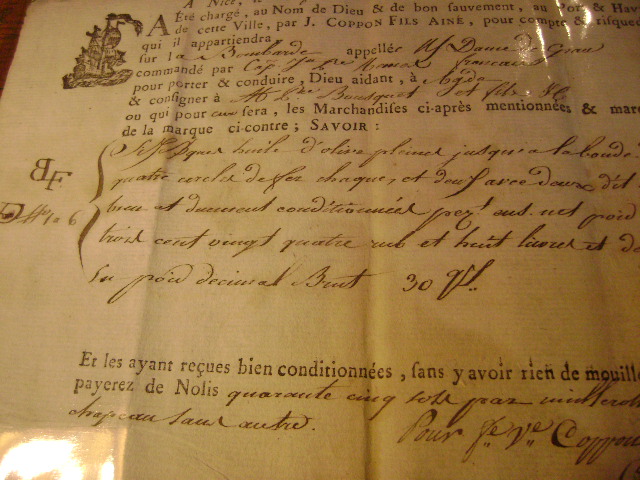 A Nice, le
A Été chargé, au Nom de Dieu & de bon sauvement, au Port & Hav
de cette Ville, par J. COPPON FILS AINÉ, pour compte & risques
qui il appartiendra,
sur la Bombarde appellée N Dame de Grace
commandé par Cap. français
pour porter & conduire, Dieu aidant, à Agde
& consigner à Bousquet et fils & C.
ou qui pour eux sera, les Marchandises ci-après mentionnées & mar
de la marque ci-contre; SAVOIR:
huile d'olive pleines jusque a la bonde
BF
quatre cercles de fer chaque, et deux avec douze dit
N. 1 a 6
bien et duement conditionnées net poid
trois cent vingt quatre rub et huit livres et d
En poid decimal Brut 30
Et les ayant reçues bien conditionnées, sans y avoir rien de mouillé
payerez de Nolis quarante cinq sols par millerolle
chapeau sans autre.
Pour Ve Coppon